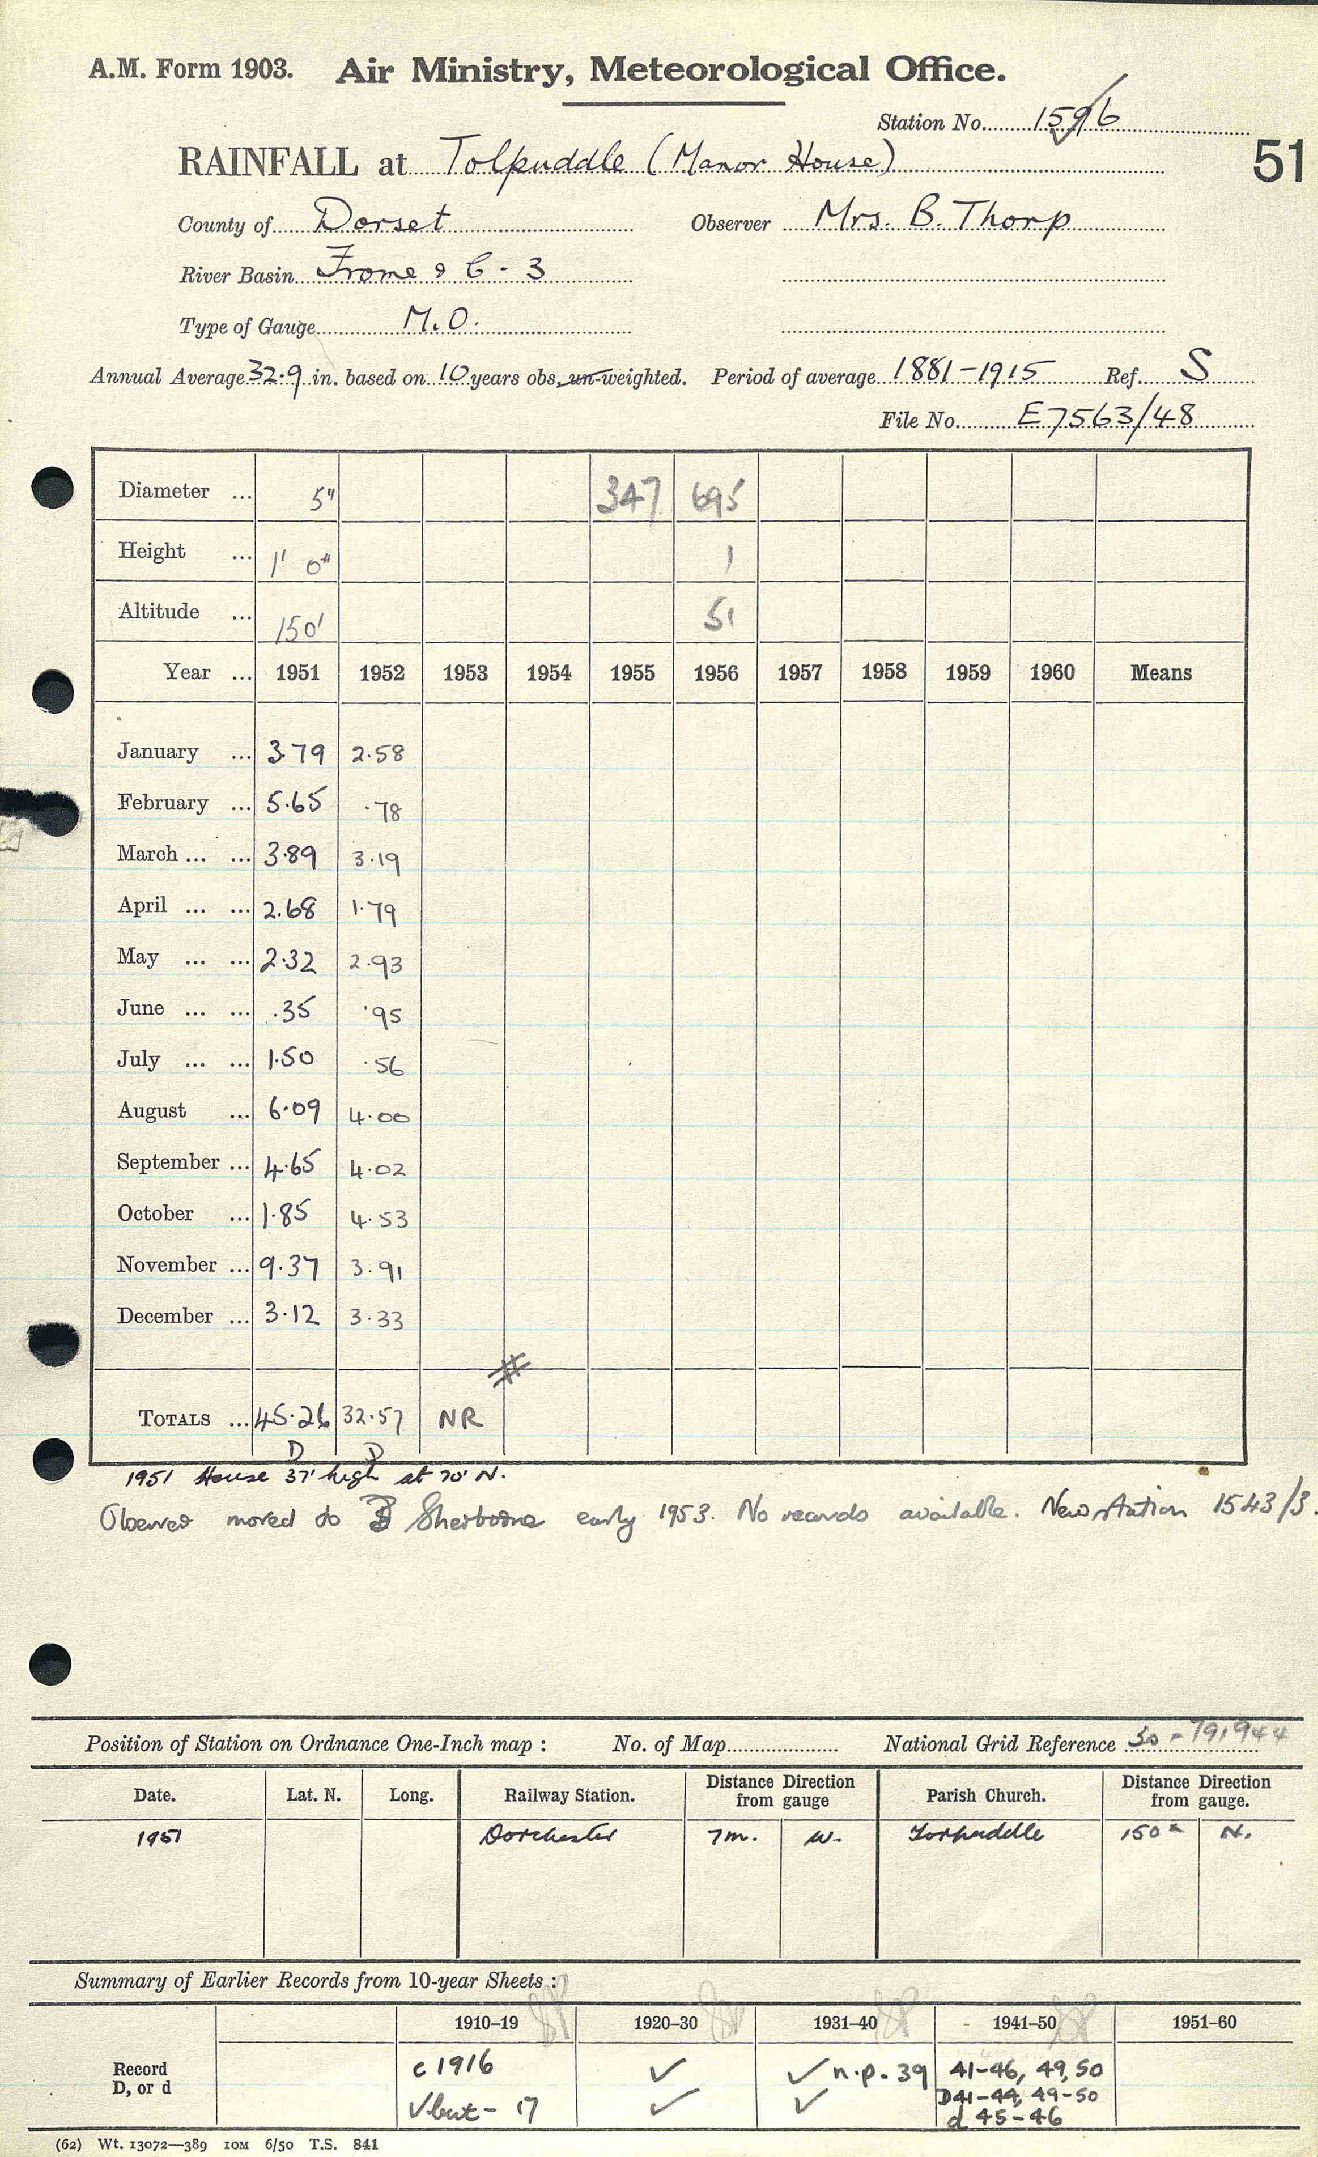 A.M. Form 1903. Air Ministry, Meteorological Office.
Station No. 1596
51
RAINFALL at Tolpuddle (Manor House)
County of Dorset Observer Mrs. B. Thorp
River Basin Frome & C - 3
Type of Gauge M.O.
Annual Average 32.9 in. based on 10 years obs, un-weighted. Period of average 1881-1915 Ref. S
File No. E7563/48
Diameter ... 5" 347 695
Height ... 1' 0" 1
Altitude ... 150' 51
Year ... 1951 1952 1953 1954 1955 1956 1957 1958 1959 1960 Means
January ... 3.79 2.58
February ... 5.65 .78
March ... ... 3.89 3.19
April ... ... 2.68 1.79
May ... ... 2.32 2.93
June ... ... .35 .95
July ... ... 1.50 .56
August ... 6.09 4.00
September ... 4.65 4.02
October ... 1.85 4.53
November ... 9.37 3.91
December ... 3.12 3.33
TOTALS ... 45.26 32.57 NR
D D
1951 House 37' high at 70' N.
Observer moved to Sherborne early 1953. No records available. New station 1543/3.
Position of Station on Ordnance One-Inch map : No. of Map National Grid Reference 30 - 791944
Date. Lat. N. Long. Railway Station. Distance Direction from gauge Parish Church. Distance Direction from gauge.
1951 Dorchester 7m. W. Tolpuddle 150 N.
Summary of Earlier Records from 10-year Sheets :
1910-19 1920-30 1931-40 1941-50 1951-60
Record c 1916 ✓ ✓ n.p. 39 41-46, 49, 50
D, or d ✓ but - 17 ✓ ✓ D41-44, 49-50
d 45-46
(62) Wt. 13072—389 10M 6/50 T.S. 841